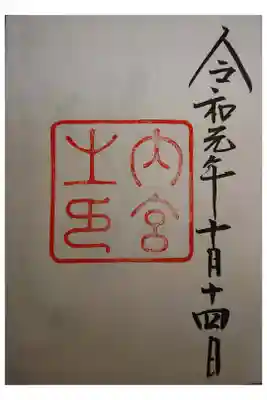 令和元年十月十四日
内宮
之印